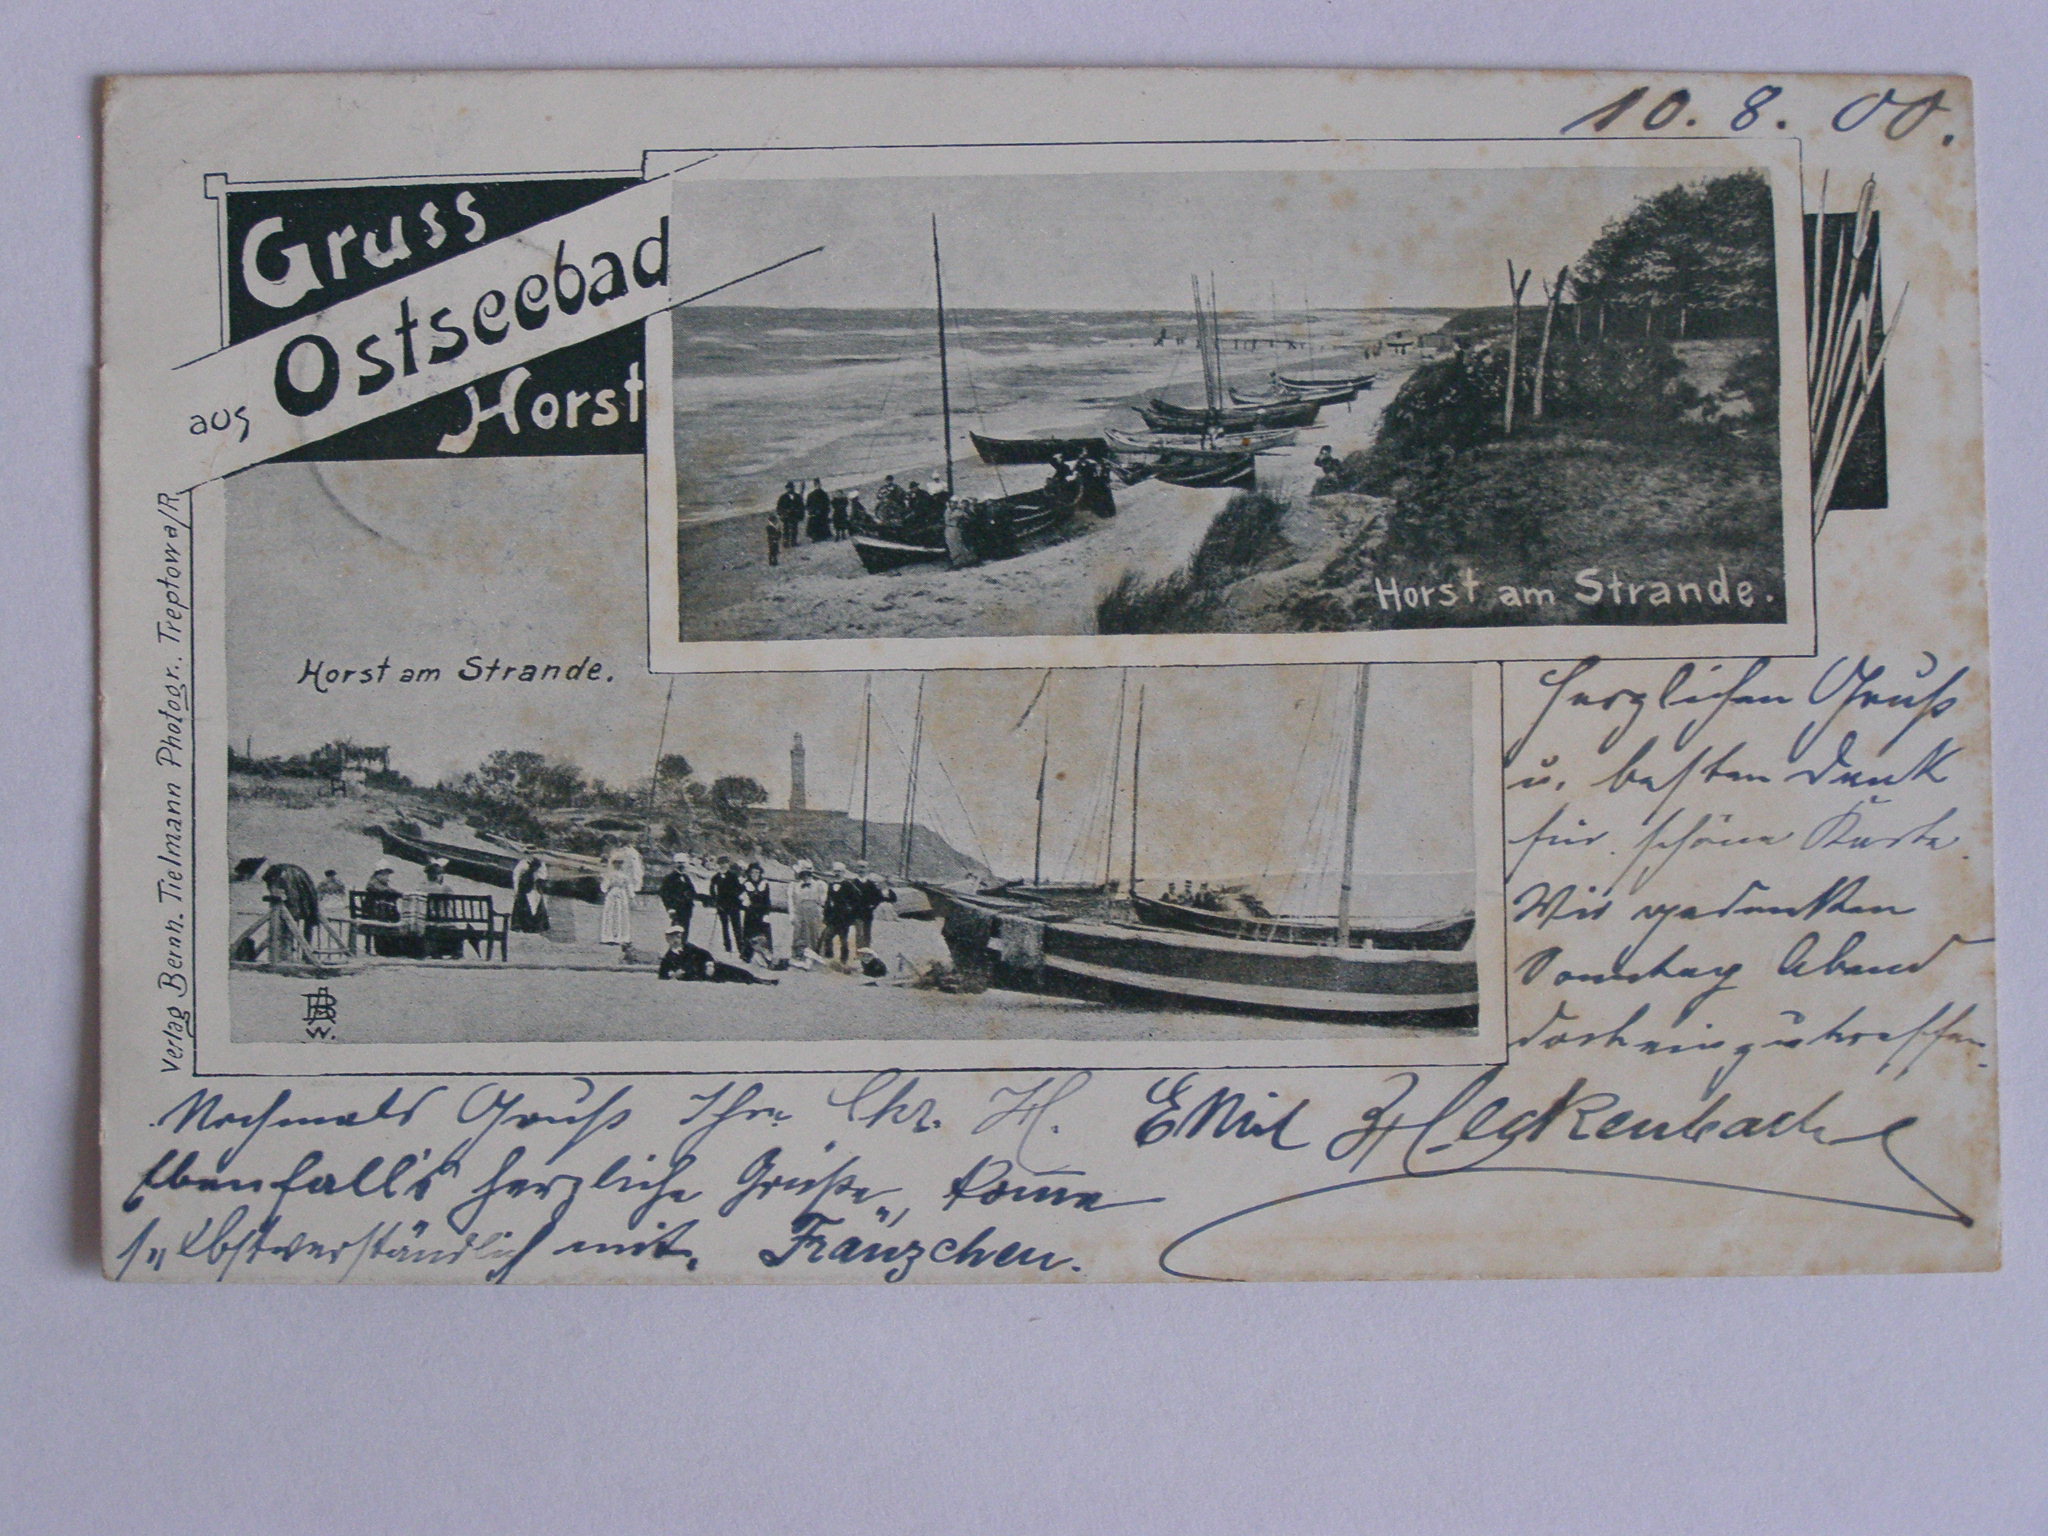 10. 8. 00.
Gruss
aus Ostseebad
Horst
Horst am Strande.
Horst am Strande.
Verlag Bernh. Tielmann Photogr., Treptow a/R
Herzlichen Gruß
u. besten Dank
für schöne Karte.
Wir gedenken
Sonntag Abend
dort einzutreffen.
Nochmals Gruß Ihr H. Emil Heckenbach
Ebenfalls herzliche Grüße, komme
selbstverständlich mit. Fränzchen.